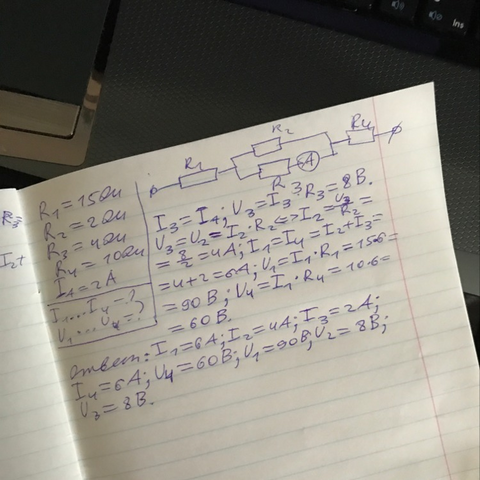 R₃=
I₂+
R₁ R₂ R₃ A R₄
R₁=15Ом
R₂=2Ом
R₃=4Ом
R₄=10Ом
Iₐ=2A
I₁...I₄-?
U₁...U₄=?
I₃=Iₐ; U₃=I₃·R₃=8В.
U₃=U₂=I₂·R₂<=>I₂=U₃/R₂=
=8/2=4A; I₁=I₄=I₂+I₃=
=4+2=6A; U₁=I₁·R₁=15·6=
=90В; U₄=I₁·R₄=10·6=
=60В.
Ответ: I₁=6A; I₂=4A; I₃=2A;
I₄=6A; U₄=60В; U₁=90В; U₂=8В;
U₃=8В.
Ins